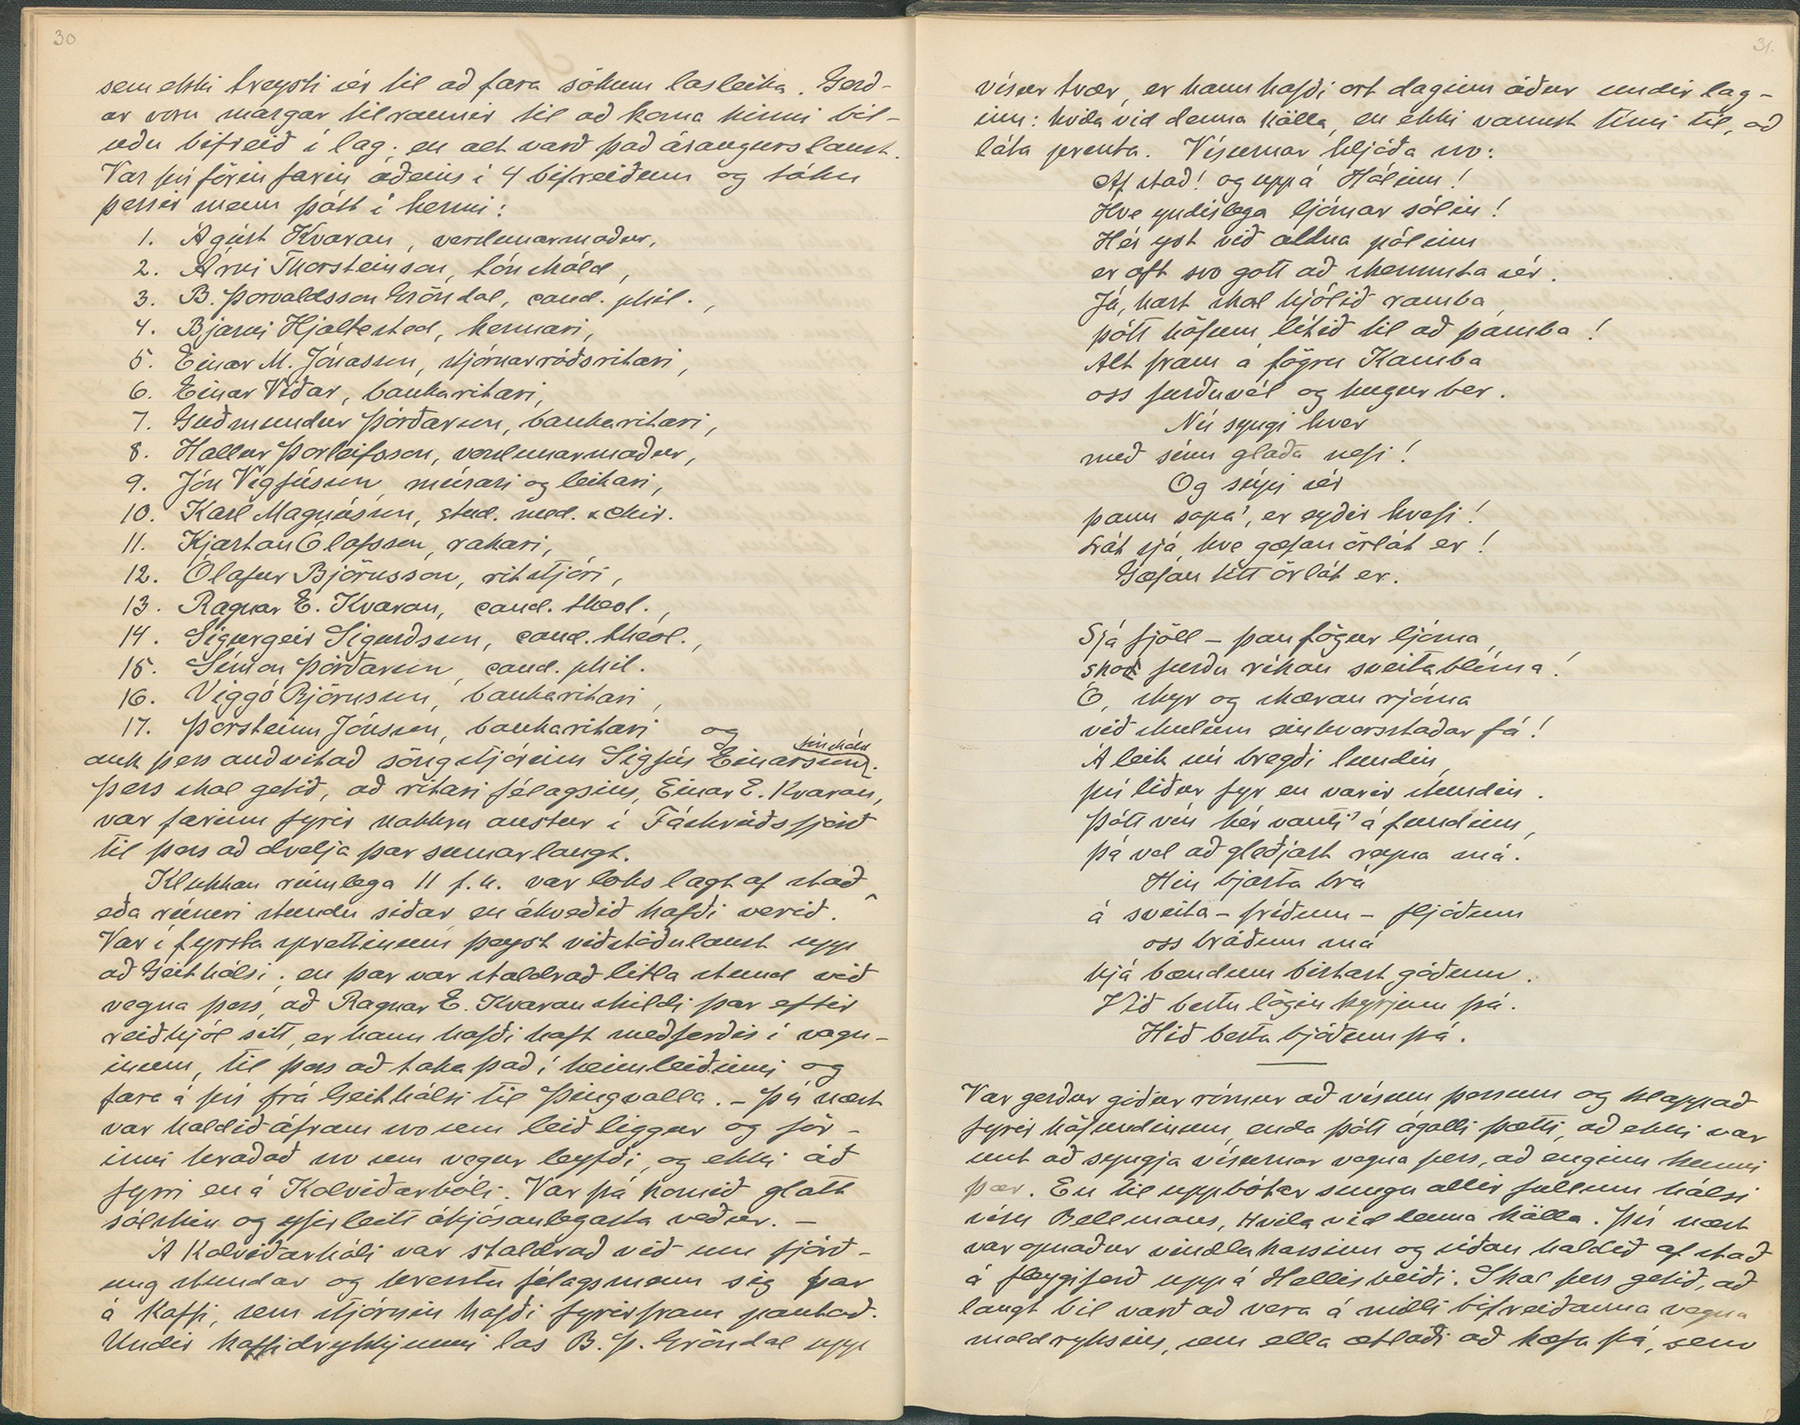 30
sem ekki treysti sér til að fara sökum lasleika. Gerð-
ar voru margar tilraunir til að koma hinni bil-
uðu bifreið í lag; en alt varð það árangurslaust.
Var því förin farin aðeins í 4 bifreiðum og tóku
þessir menn þátt í henni:
1. Ágúst Kvaran, verslunarmaður,
2. Árni Thorsteinson, tónskáld,
3. B. Þorvaldsson Gröndal, cand. phil.,
4. Bjarni Hjaltested, kennari,
5. Einar M. Jónasson, stjórnarráðsritari,
6. Einar Viðar, bankaritari,
7. Guðmundur Þórðarson, bankaritari,
8. Hallur Þorleifsson, verslunarmaður,
9. Jón Vigfússon, múrari og leikari,
10. Karl Magnússon, stud. med. & chir.
11. Kjartan Ólafsson, rakari,
12. Ólafur Björnsson, ritstjóri,
13. Ragnar E. Kvaran, cand. theol.,
14. Sigurgeir Sigurðsson, cand. theol.,
15. Símon Þórðarson, cand. phil.
16. Viggó Björnsson, bankaritari,
17. Þorsteinn Jónsson, bankaritari og
auk þess auðvitað söngstjórinn Sigfús Einarsson tónskáld.
Þess skal getið, að ritari félagsins, Einar E. Kvaran,
var farinn fyrir nokkru austur í Fáskrúðsfjörð
til þess að dvelja þar sumarlangt.
Klukkan rúmlega 11 f.h. var loks lagt af stað
eða rúmri stundu síðar en ákveðið hafði verið.
Var í fyrsta sprettinum þeyst viðstöðulaust upp
að Geithálsi; en þar var staldrað litla stund við
vegna þess, að Ragnar E. Kvaran skildi þar eftir
reiðhjól sitt, er hann hafði haft meðferðis í vagn-
inum, til þess að taka það í heimleiðinni og
fara á því frá Geithálsi til Þingvalla. - Því næst
var haldið áfram svo sem leið liggur og för-
inni hraðað svo sem vegur leyfði, og ekki áð
fyrri en á Kolviðarhóli. Var þá komið glatt
sólskin og yfirleitt ákjósanlegasta veður. -
Á Kolviðarhóli var staldrað við um fjórð-
ung stundar og hresstu félagsmenn sig þar
á kaffi, sem stjórnin hafði fyrirfram pantað.
Undir kaffidrykkjunni las B. Þ. Gröndal upp
31.
vísur tvær, er hann hafði ort daginn áður undir lag-
inu: hvila vid denna källa, en ekki vannst tími til, að
láta prenta. Vísurnar hljóða svo:
Af stað! og upp á Hólinn!
Hve yndislega ljómar sólin!
Hér yst við aldna pólinn
er oft svo gott að skemmta sér.
Já, hart skal hjólið ramba
þótt höfum lítið til að þamba!
Alt fram á fögru Kamba
oss furðuvél og hugur ber.
Nú syngi hver
með sínu glaða nefi!
Og súpi sér
þann sopa, er eyðir kvefi!
Þrát sjá, hve gæfan örlát er!
Gæfan títt örlát er.
Sjá fjöll - þau fögur ljóma,
skoð furðu ríkan sveitablóma!
Ó, skyr og skæran rjóma
við skulum einhversstaðar fá!
Á leik nú bregði lundin,
þú líður fyr en varir stundin.
Þótt vín hér vanti á fundinn,
þá vel að gleðjast reyna má.
Hin bjarta brá
á sveita - fríðum - fljóðum
oss bráðum má
hjá bændum birtast góðum.
Við bestu lögin kyrjum þá.
Hið besta bjóðum þá.
Var gerður góður rómur að vísum þessum og klappað
fyrir höfundinum, enda þótt ágalli þætti, að ekki var
unt að syngja vísurnar vegna þess, að enginn kunni
þær. En til uppbótar sungu allir fullum hálsi
vísu Bellmans, Hvila vid denna källa. Því næst
var opnaður vindlakassinn og síðan haldið af stað
á fleygiferð upp á Hellisheiði. Skal þess getið, að
langt bil varð að vera á milli bifreiðanna vegna
moldryksins, sem ella ætlaði að kæfa þá, sem